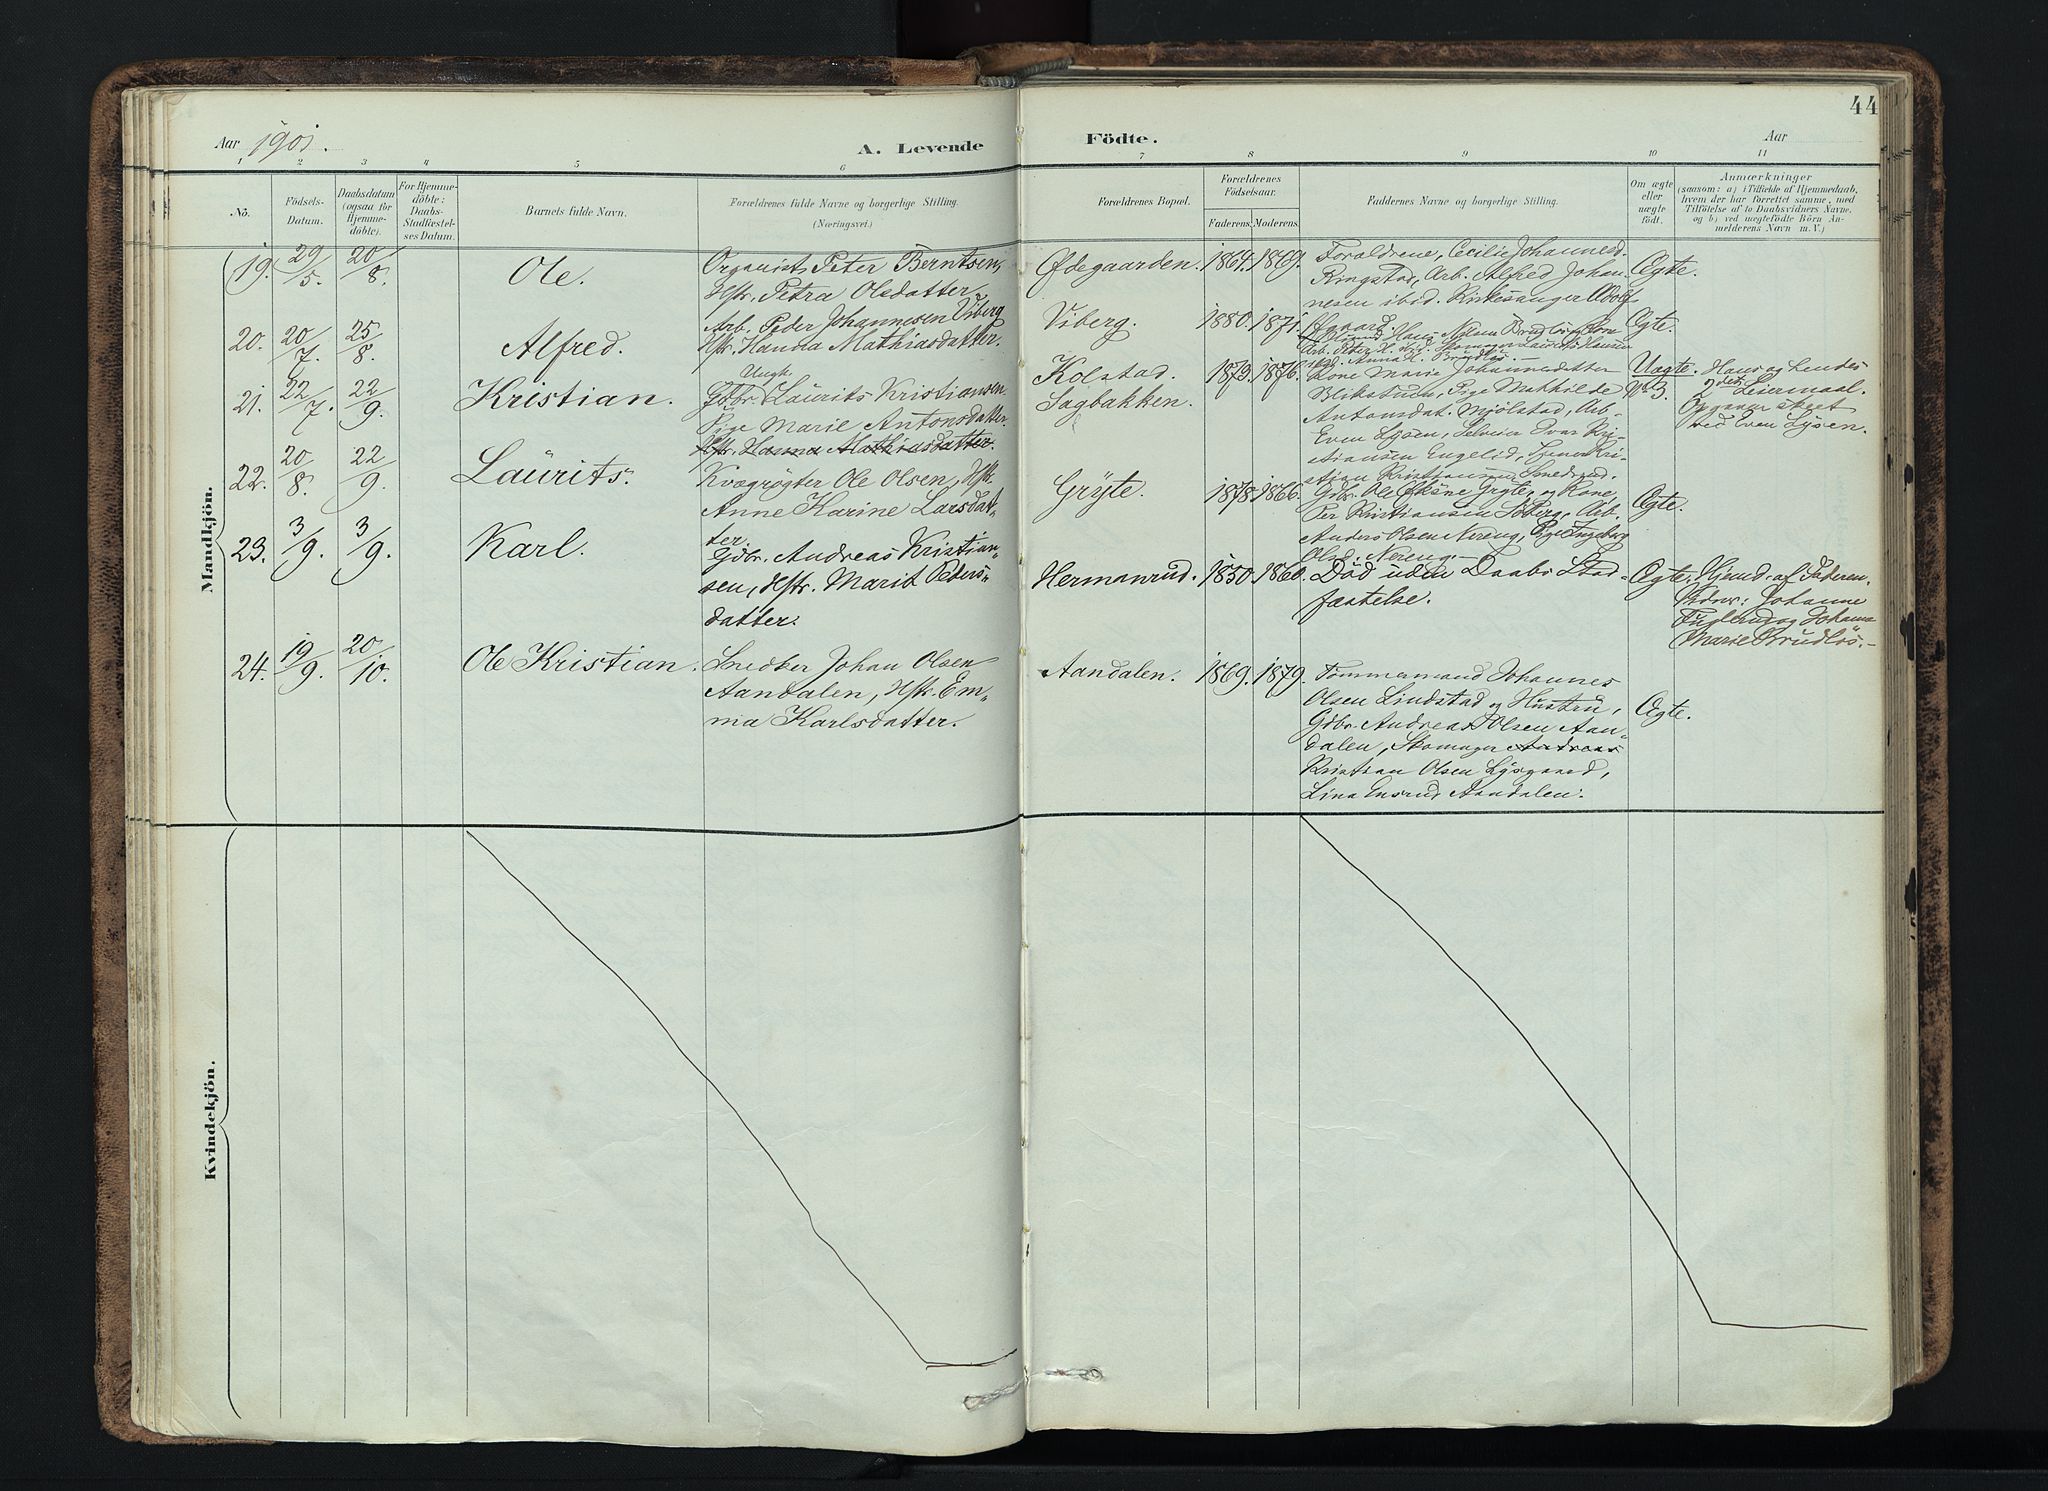 44
Aar 1901.
A. Levende
Födte.
Aar
1 2 3 4 5 6 7 8 9 10 11
No.
Födsels-
Datum.
Daabsdatum
(ogsaa for
Hjemme-
döbte).
For Hjemme-
döbte:
Daabs-
Stadfæstel-
ses Datum.
Barnets fulde Navn.
Forældrenes fulde Navne og borgerlige Stilling.
(Næringsvei.)
Forældrenes Bopæl.
Forældrenes
Födselsaar.
Faderens. Moderens.
Faddernes Navne og borgerlige Stilling.
Om ægte
eller
uægte
födt.
Anmærkninger
(saasom: a) i Tilfælde af Hjemmedaab,
hvem der har forrettet samme, med
Tilföielse af to Daabsvidners Navne,
og b) ved uægtefödte Börn An-
melderens Navn m. V.)
Mandkjön.
19. 29/5. 20/8. Ole.
Organist Peter Berntsen,
Hstr. Petra Olsdatter
Ødegaarden. 1864. 1869.
Foraldrene, Cecilie Johannesd.
Ringstad, Arb. Alfred Johan-
nesen ibid. Kirkesanger Adolf
Ægte.
20. 20/7. 25/8. Alfred.
Arb. Peder Johannesen Viberg
Hstr. Hanna Mathiasdatter.
Viberg. 1880. 1871.
Hans Nilsen Brudlös
Arb. Peter Skomager Laurits Hansen
Anna Brudlös.
Ægte.
21. 22/7. 22/9. Kristian.
Ungk.
Gdbr. Laurits Kristiansen
Pige Marie Antonsdatter.
Hstr. Hanna Mathiasdatter.
Kolstad. 1879. 1876.
Sagbakken.
Kone Marie Johannesdatter
Blikstuen, Pige Mathilde
Antonsdat. Mjölstad, Arb.
Even Lysen, Selveier Ivar Kri-
stiansen Engelid,
Uægte.
No 3.
Hans og hendes
2det Leiermaal.
Opgaven skeet
ved Even Lysen.
22. 20/8. 22/9. Laurits.
Kvægrögter Ole Olsen, Hstr.
Anne Karine Larsdat-
ter.
Gryte. 1878. 1866.
Gdbr. Ole Gryte, og Kone,
Per Kristiansen Arb.
Anders Olsen Nereng, Pige Ingeborg
Olsd. Nereng.
Ægte.
23. 3/9. 3/9. Karl.
Gdbr. Andreas Kristian-
sen, Hstr. Marit Peders-
datter.
Hermanrud. 1850. 1860.
Död uden Daabs Stad-
fæstelse.
Ægte.
Hjemd. af Faderen.
Vidner: Johanne
Fuglerud og Johanne
Marie Brudlös.
24. 19/9. 20/10. Ole Kristian.
Snedker Johan Olsen
Aandalen, Hstr. Em-
ma Karlsdatter.
Aandalen. 1869. 1879.
Tömmermand Johannes
Olsen Lindstad og Hustru,
Gdbr. Andreas Olsen Aan-
dalen, Skomager Andreas
Kristian Olsen Lysgaard,
Lina Ensrud Aandalen.
Ægte.
Kvindekjön.